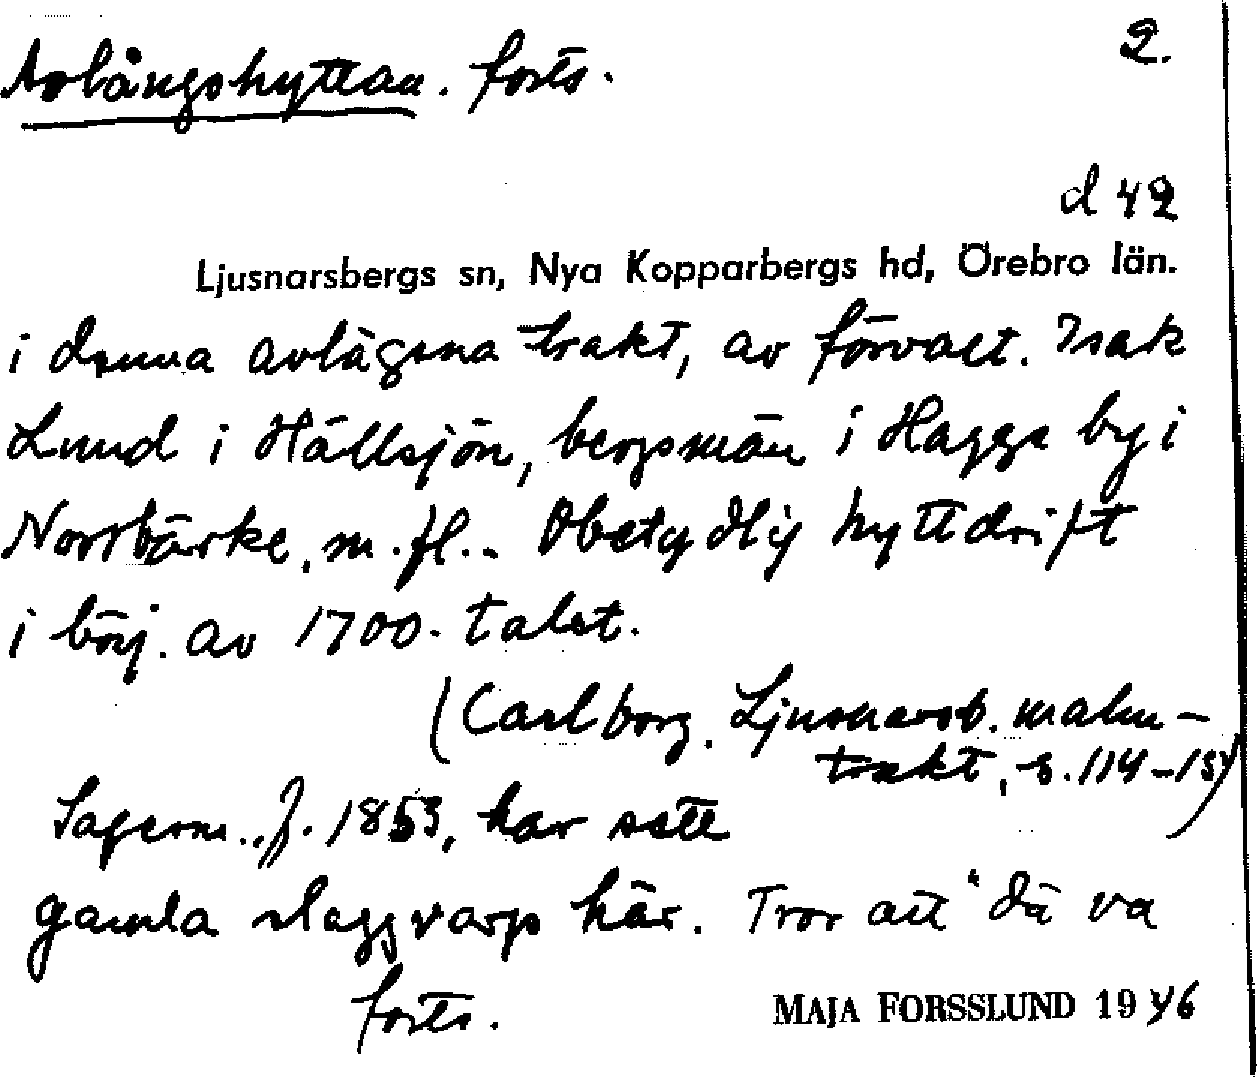 Avlångshyttan. forts.
2.
d 42
Ljusnarsbergs sn, Nya Kopparbergs hd, Örebro län.
i denna avlägsna trakt, av förvalt. Isak
Lund i Hällsjön, bergsmän i Haggs by i
Norrbärke, m. fl.. Obetydlig hyttdrift
i börj. av 1700-talet.
(Carlborg. Ljusnarsb. malm-
trakt, s. 114-15)
Sagesm., f. 1853, har sett
gamla slaggvarp här. Tror att "dä va
forts.
MAJA FORSSLUND 1946